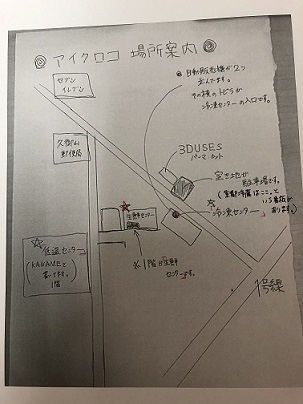 ◎ アイクロコ 場所案内 ◎
セブン
イレブン
◎ 自動販売機が2つ
並んでいます。
その横のトビラが
冷凍センターの入口です。
久御山
郵便局
3DUSES
パーマ・カット
空き地が
駐車場です。
☆冷凍センター
生鮮センター
※1階が生鮮
センターです。
☆低温センター
(KANAMEと
書いてます。)
1階
1号線